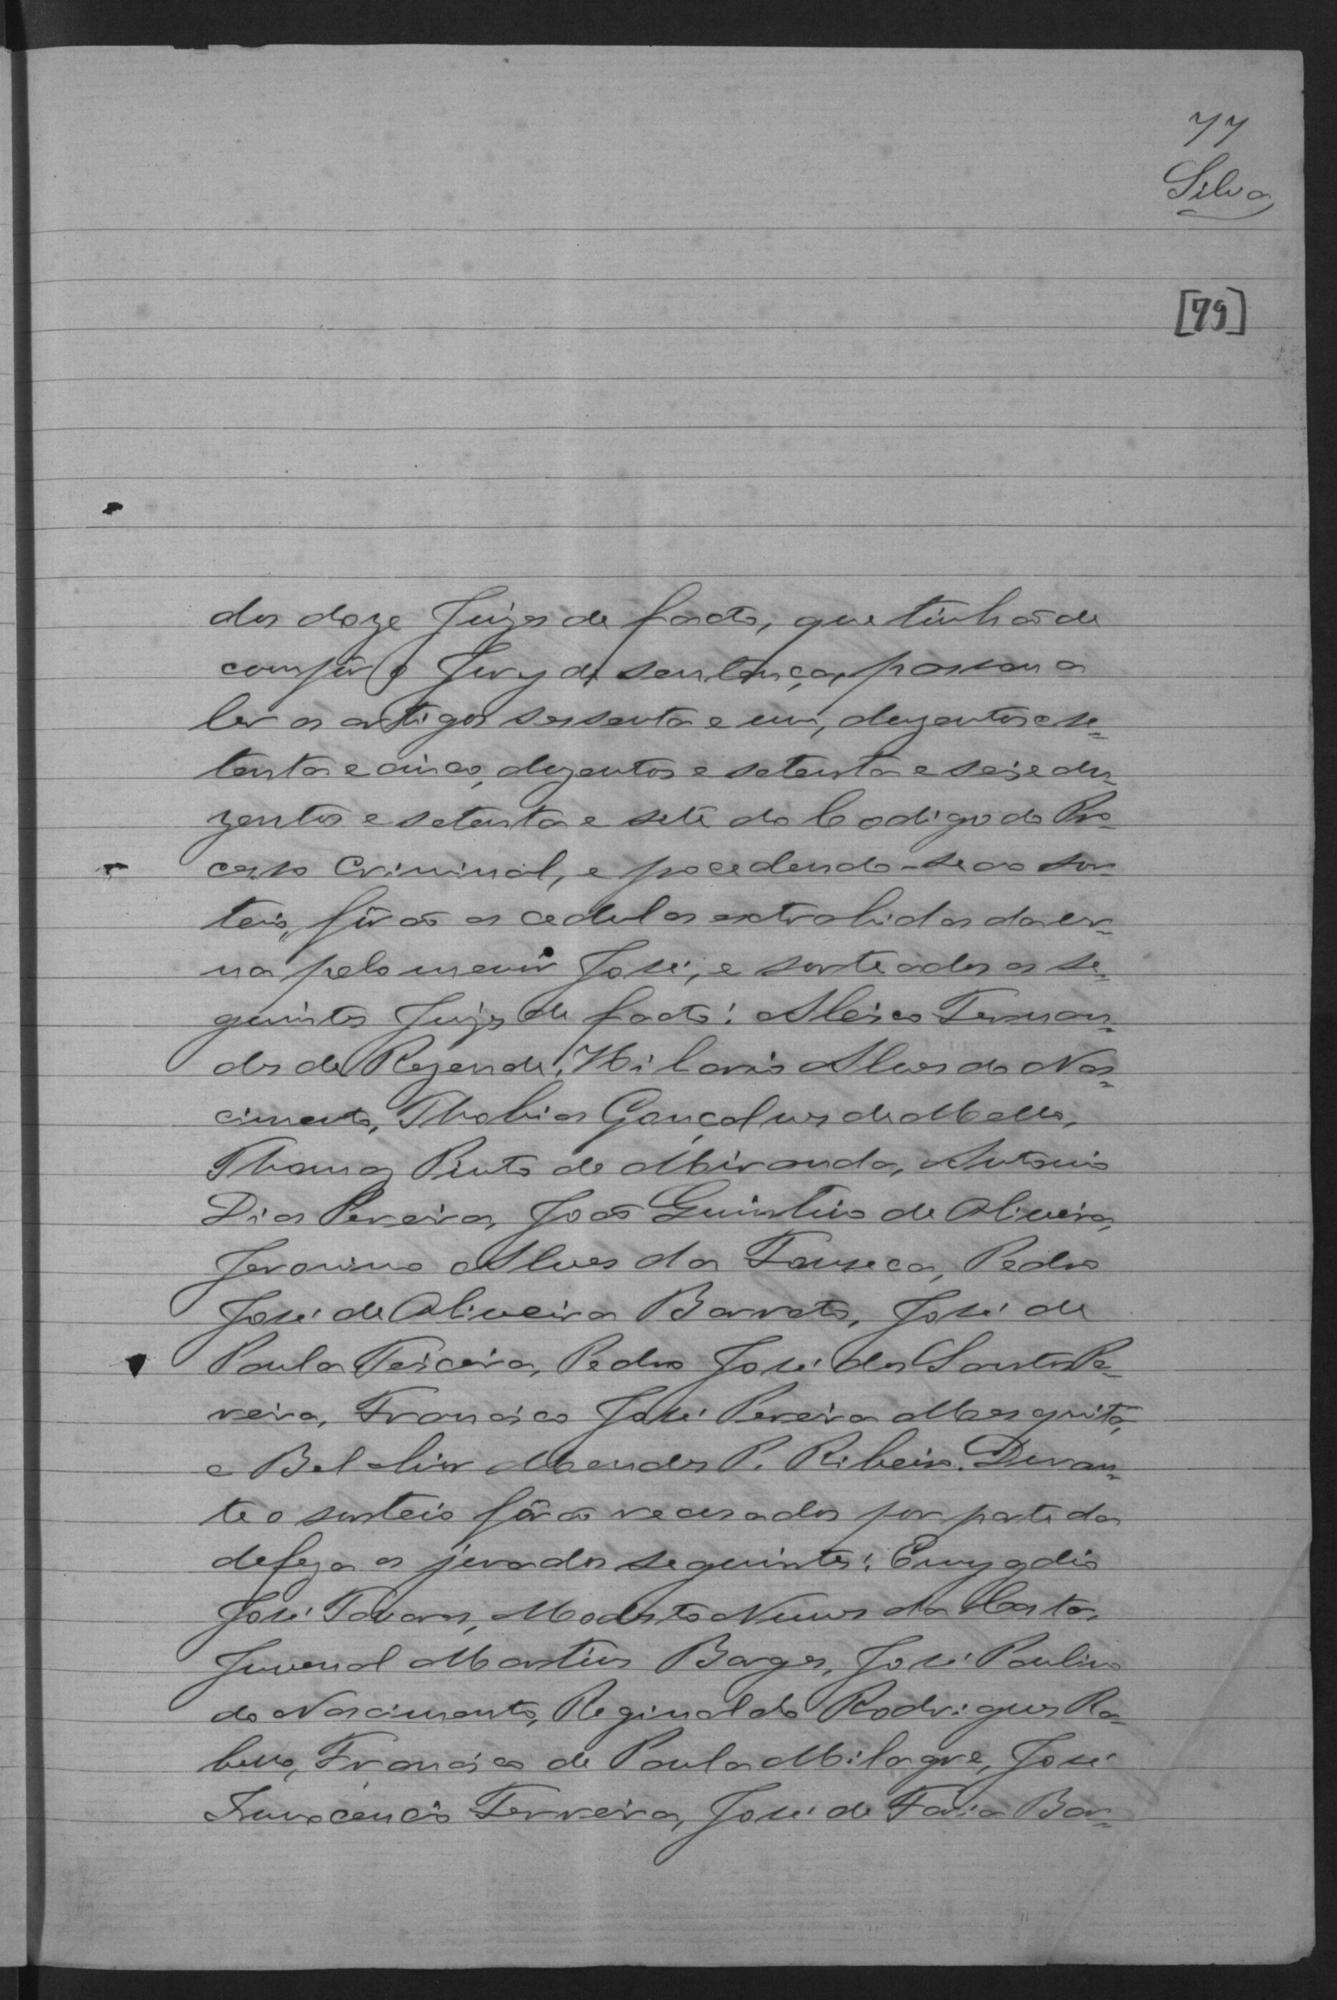 77
Silva
[79]
dos doze Juizes de facto, que tinhão de
compôr o Jury de sentença, passou a
ler os artigos sessenta e um, duzentos e se=
tenta e cinco, duzentos e setenta e seis e du=
zentos e setenta e sete do Codigo do Pro=
cesso Criminal, e procedendo-se ao sor=
teio, fôrão as cedulas extrahidas da ur=
na pelo menor José, e sorteados os se=
guintes Juizes de facto: Aleixo Fernan=
des de Rezende, Hilario Alves do Nas=
cimento, Thobias Gonçalves de Mello,
Thomaz Pinto de Miranda, Antonio
Dias Pereira, João Quintino de Oliveira,
Jeronimo Alves da Fonseca, Pedro
José de Oliveira Barreto, José de
Paula Teixeira, Pedro José dos Santos Pe=
reira, Francisco José Pereira Mesquita,
e Belchior Mendes P. Ribeiro. Duran=
te o sorteio fôrão recusados por parte da
defeza os jurados seguintes: Emygdio
José Tavares, Modesto Nunes da Costa,
Juvenal Martins Borges, José Paulino
do Nascimento, Reginaldo Rodrigues Ra=
bello, Francisco de Paula Milagre, José
Innocencio Ferreira, José de Faria Bar=